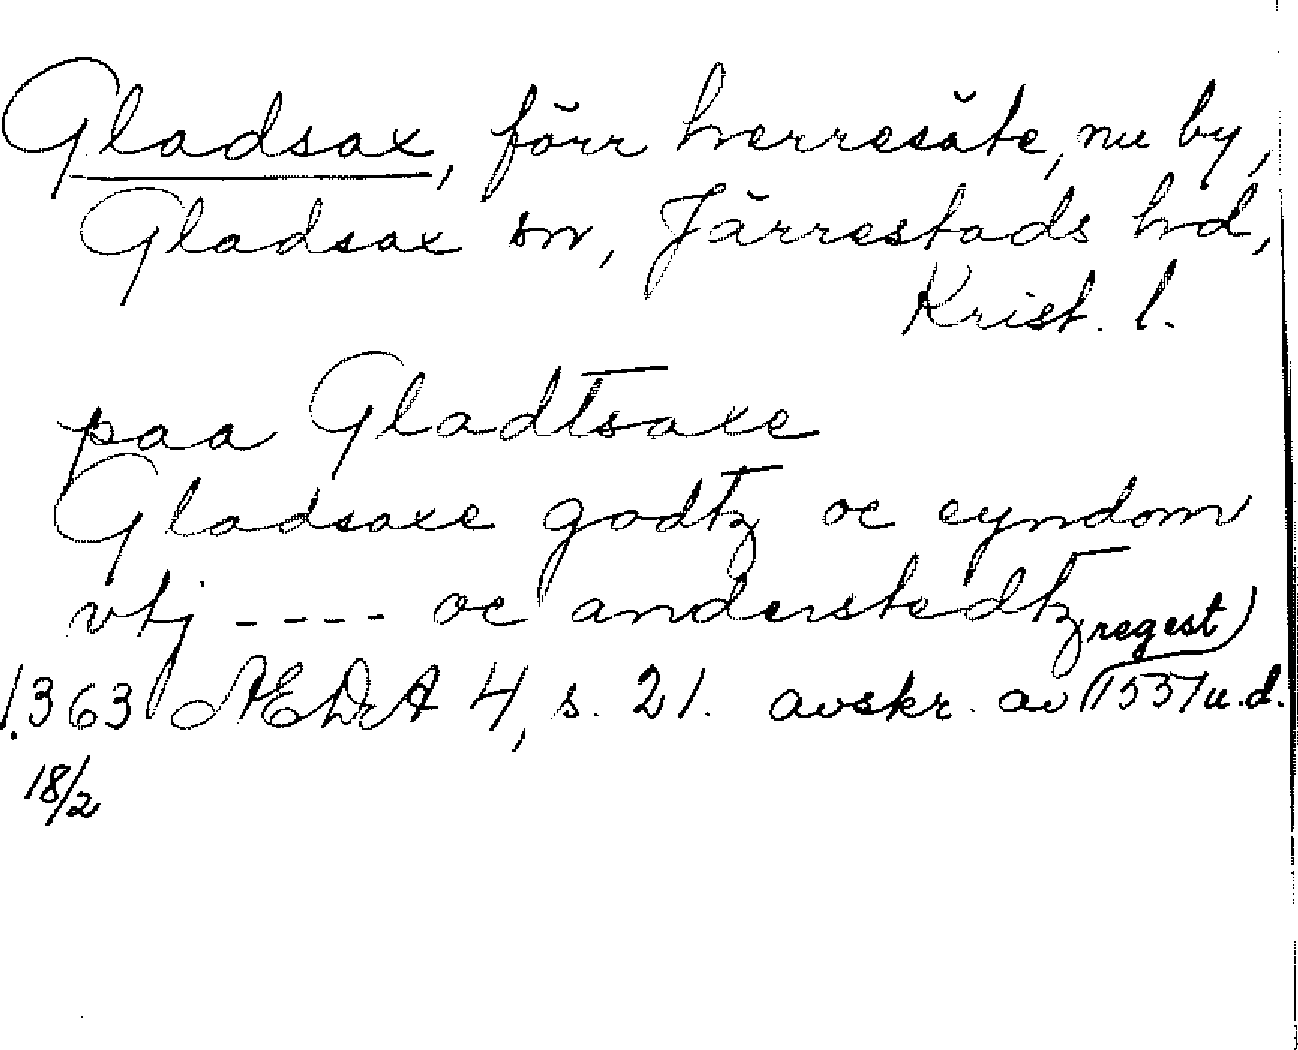 Gladsax, förr herresäte, nu by,
Gladsax sn, Järrestads hd,
Krist. l.
paa Gladtsaxe
Gladsaxe godtz oc eyndom
vtj ---- oc anderstedtz
1363 ÆDA 4, s. 21. avskr. av regest 1551 u.d.
18/2